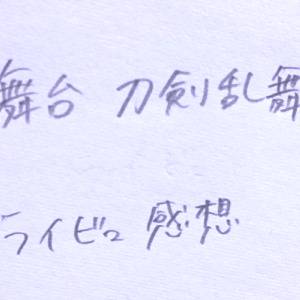 舞台 刀剣乱舞
ライビュ 感想